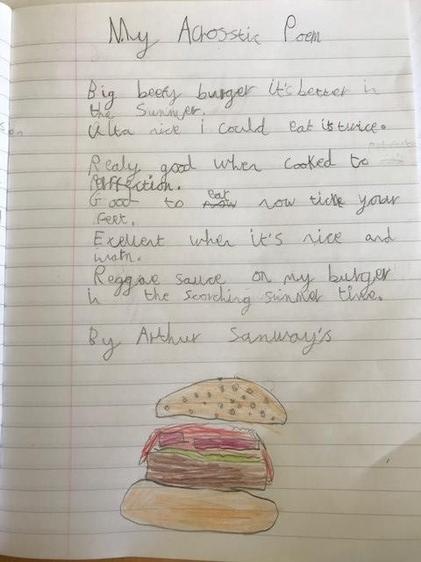 My Acrosstic Poem
Big beefy burger it's better in
the Summer.
Ulta nice i could eat it twice.
Realy good when cooked to
Purffection.
Good to eat now tick your
feet.
Exellent when it's nice and
warm.
Reggae sauce on my burger
in the scorching summer time.
By Arthur Sanway's